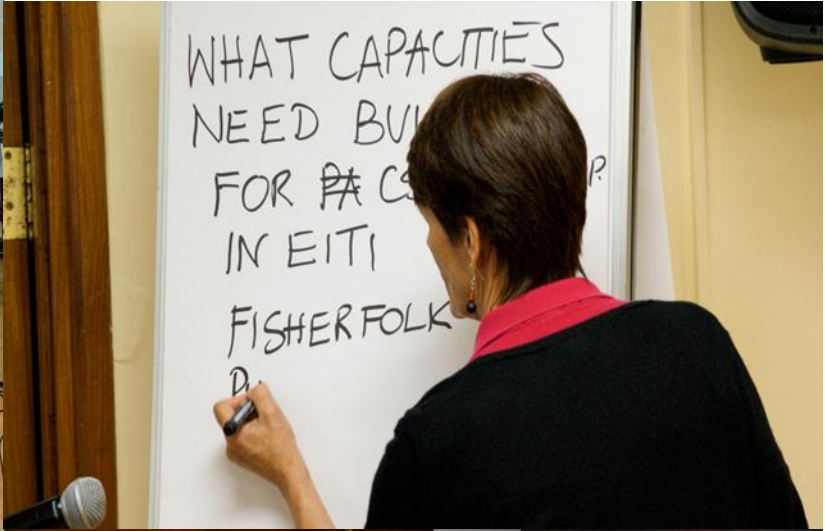 WHAT CAPACITIES
NEED
FOR PA
P.
IN EITI
FISHERFOLK